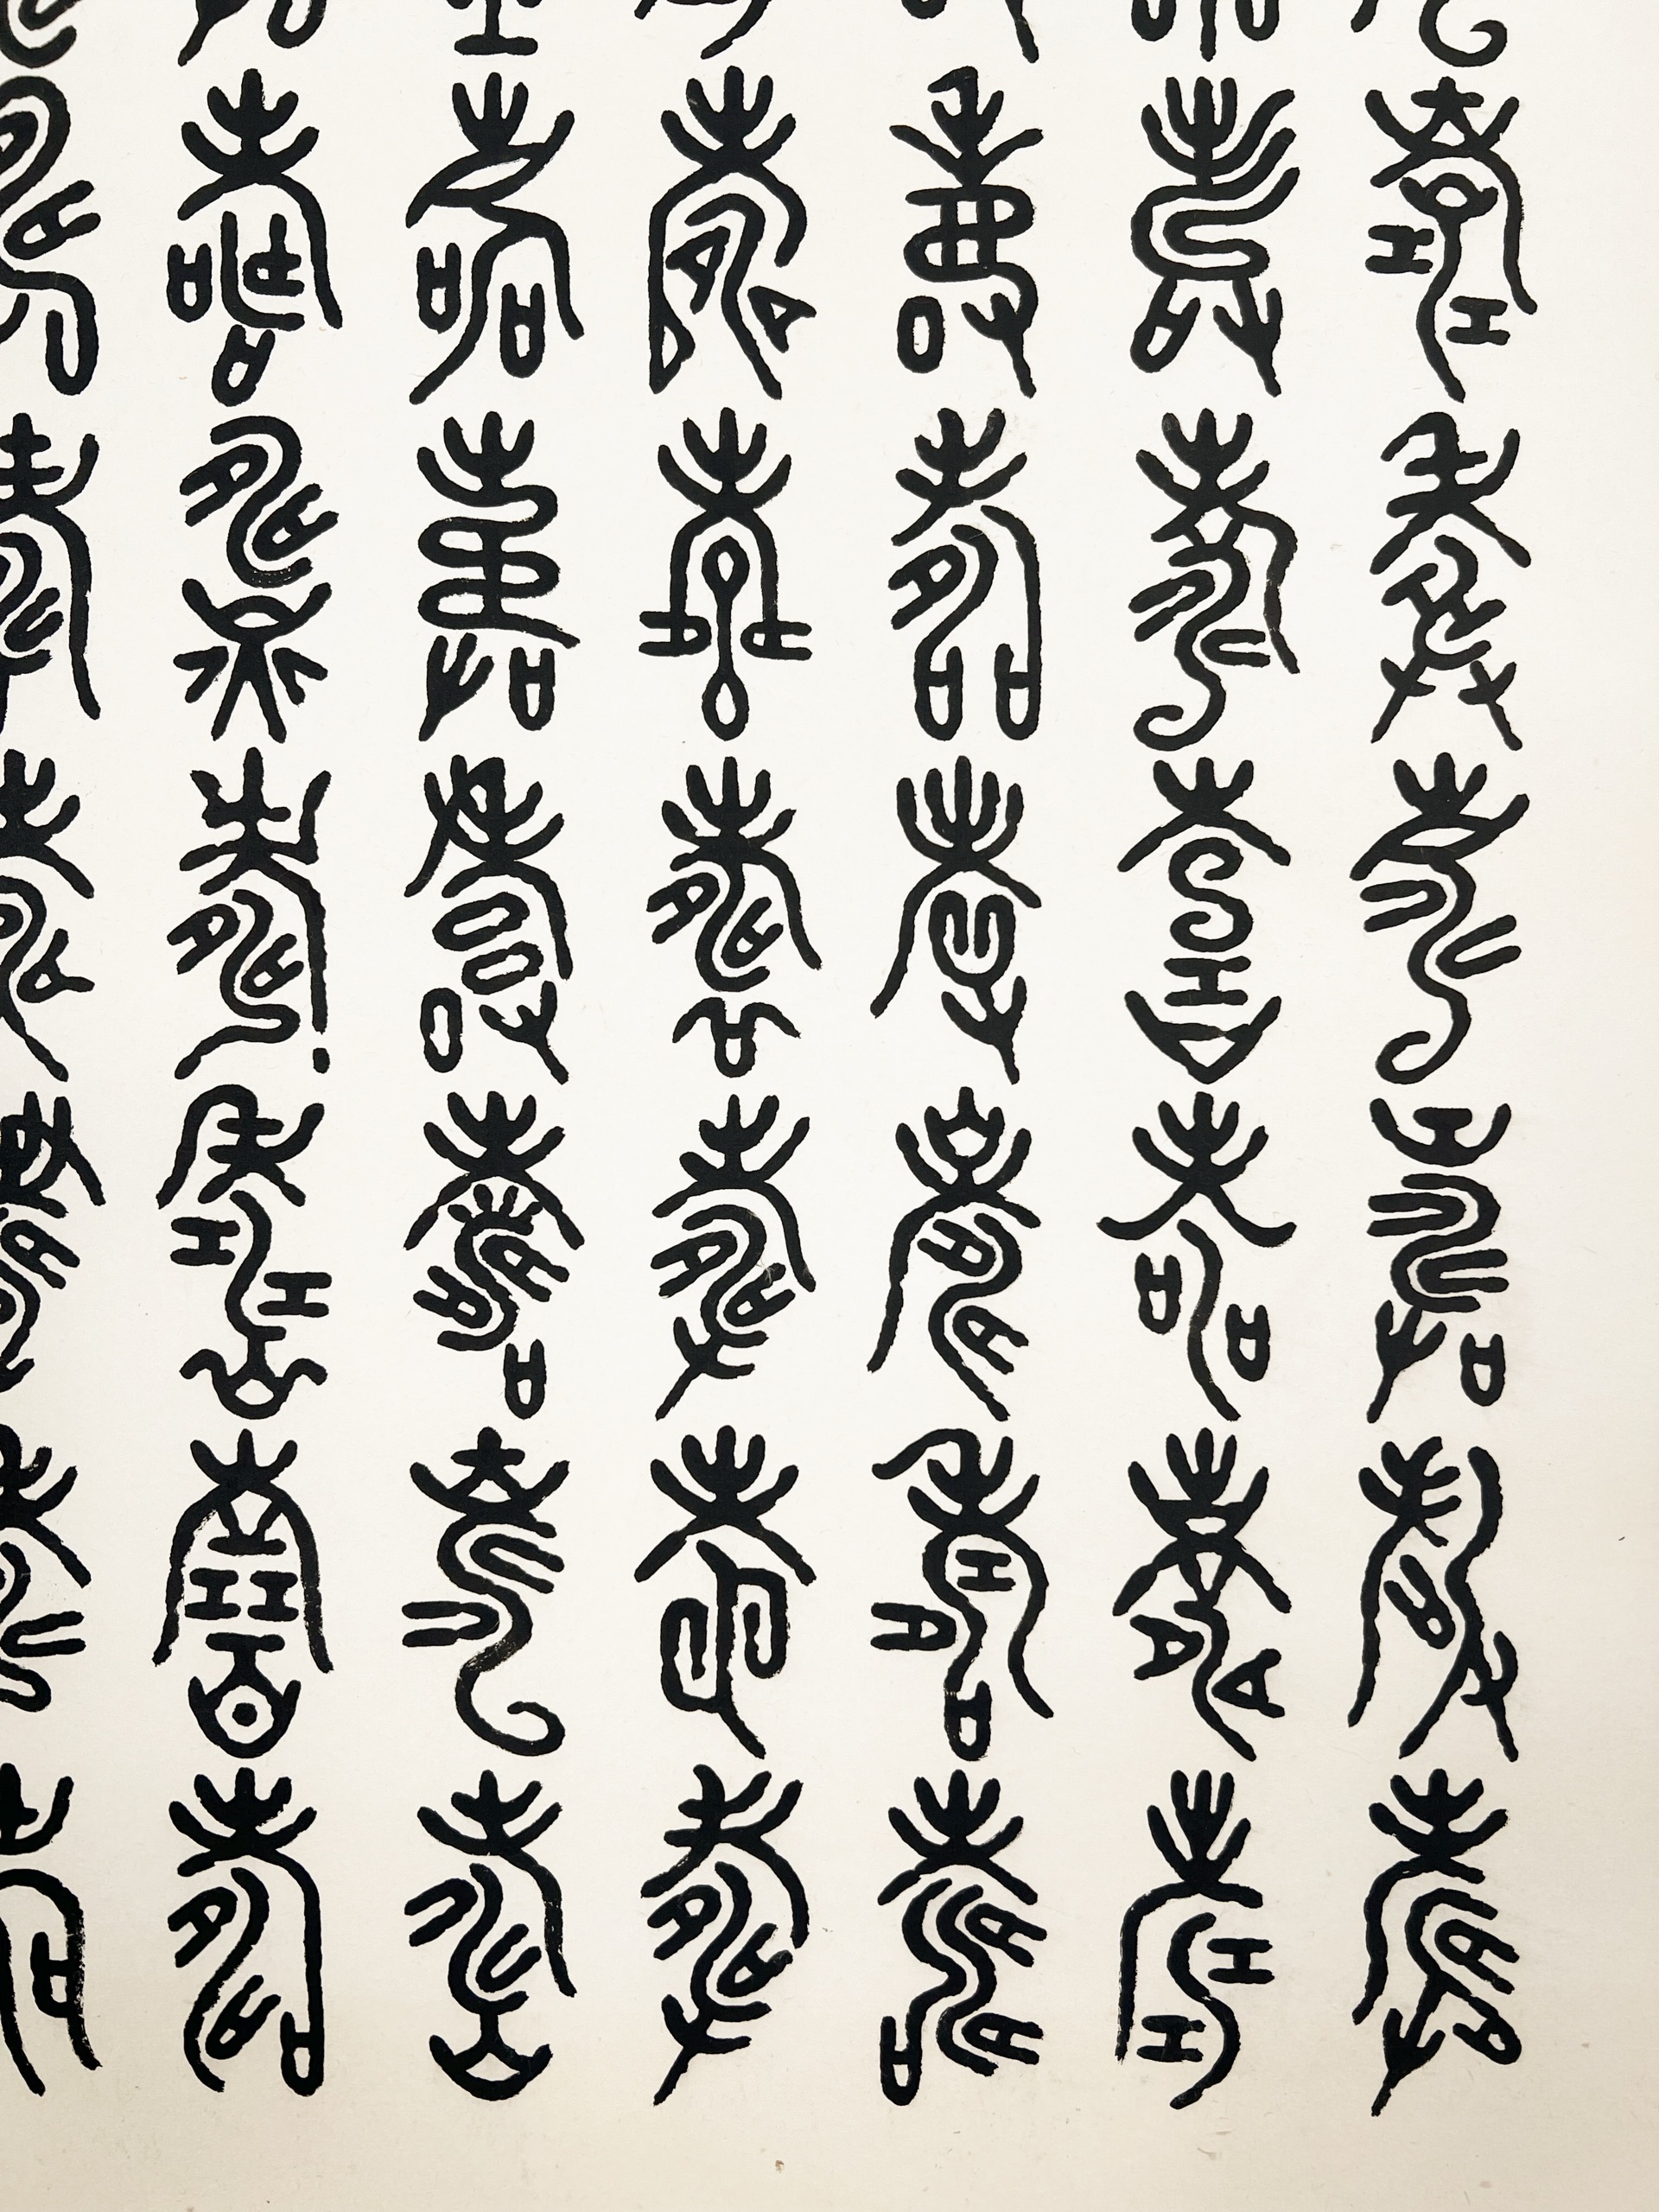 壽壽壽壽壽壽
壽壽壽壽壽壽
壽壽壽壽壽壽
壽壽壽壽壽壽
壽壽壽壽壽壽
壽壽壽壽壽壽